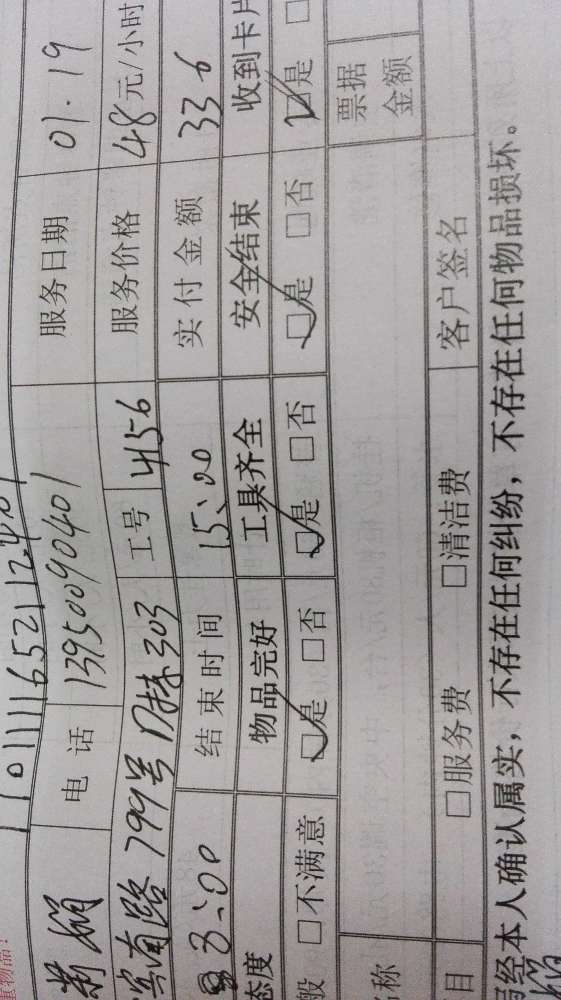 重物品!
1011111652112401
电话 13950090401 服务日期 01.19
南路799号D栋303 工号 4156 服务价格 48元/小时
3:00 结束时间 15:00 实付金额 336
态度 物品完好 工具齐全 安全结束 收到卡片
般 □不满意 ☑是 □否 ☑是 □否 ☑是 □否 ☑是 □
称 票据金额
目 □服务费 □清洁费 客户签名
经本人确认属实，不存在任何纠纷，不存在任何物品损坏。